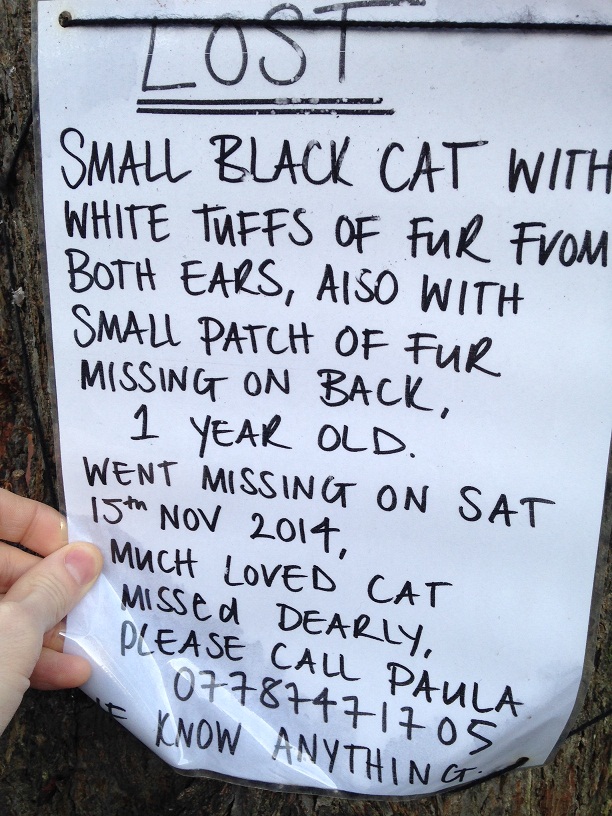 LOST
SMALL BLACK CAT WITH
WHITE TUFFS OF FUR FVOM
BOTH EARS, AlSO WITH
SMALL PATCH OF FUR
MISSING ON BACK,
1 YEAR OLD.
WENT MISSING ON SAT
15th NOV 2014,
MUCH LOVED CAT
MISSed DEARLY,
PLEASE CALL PAULA
07787471705
KNOW ANYTHING.